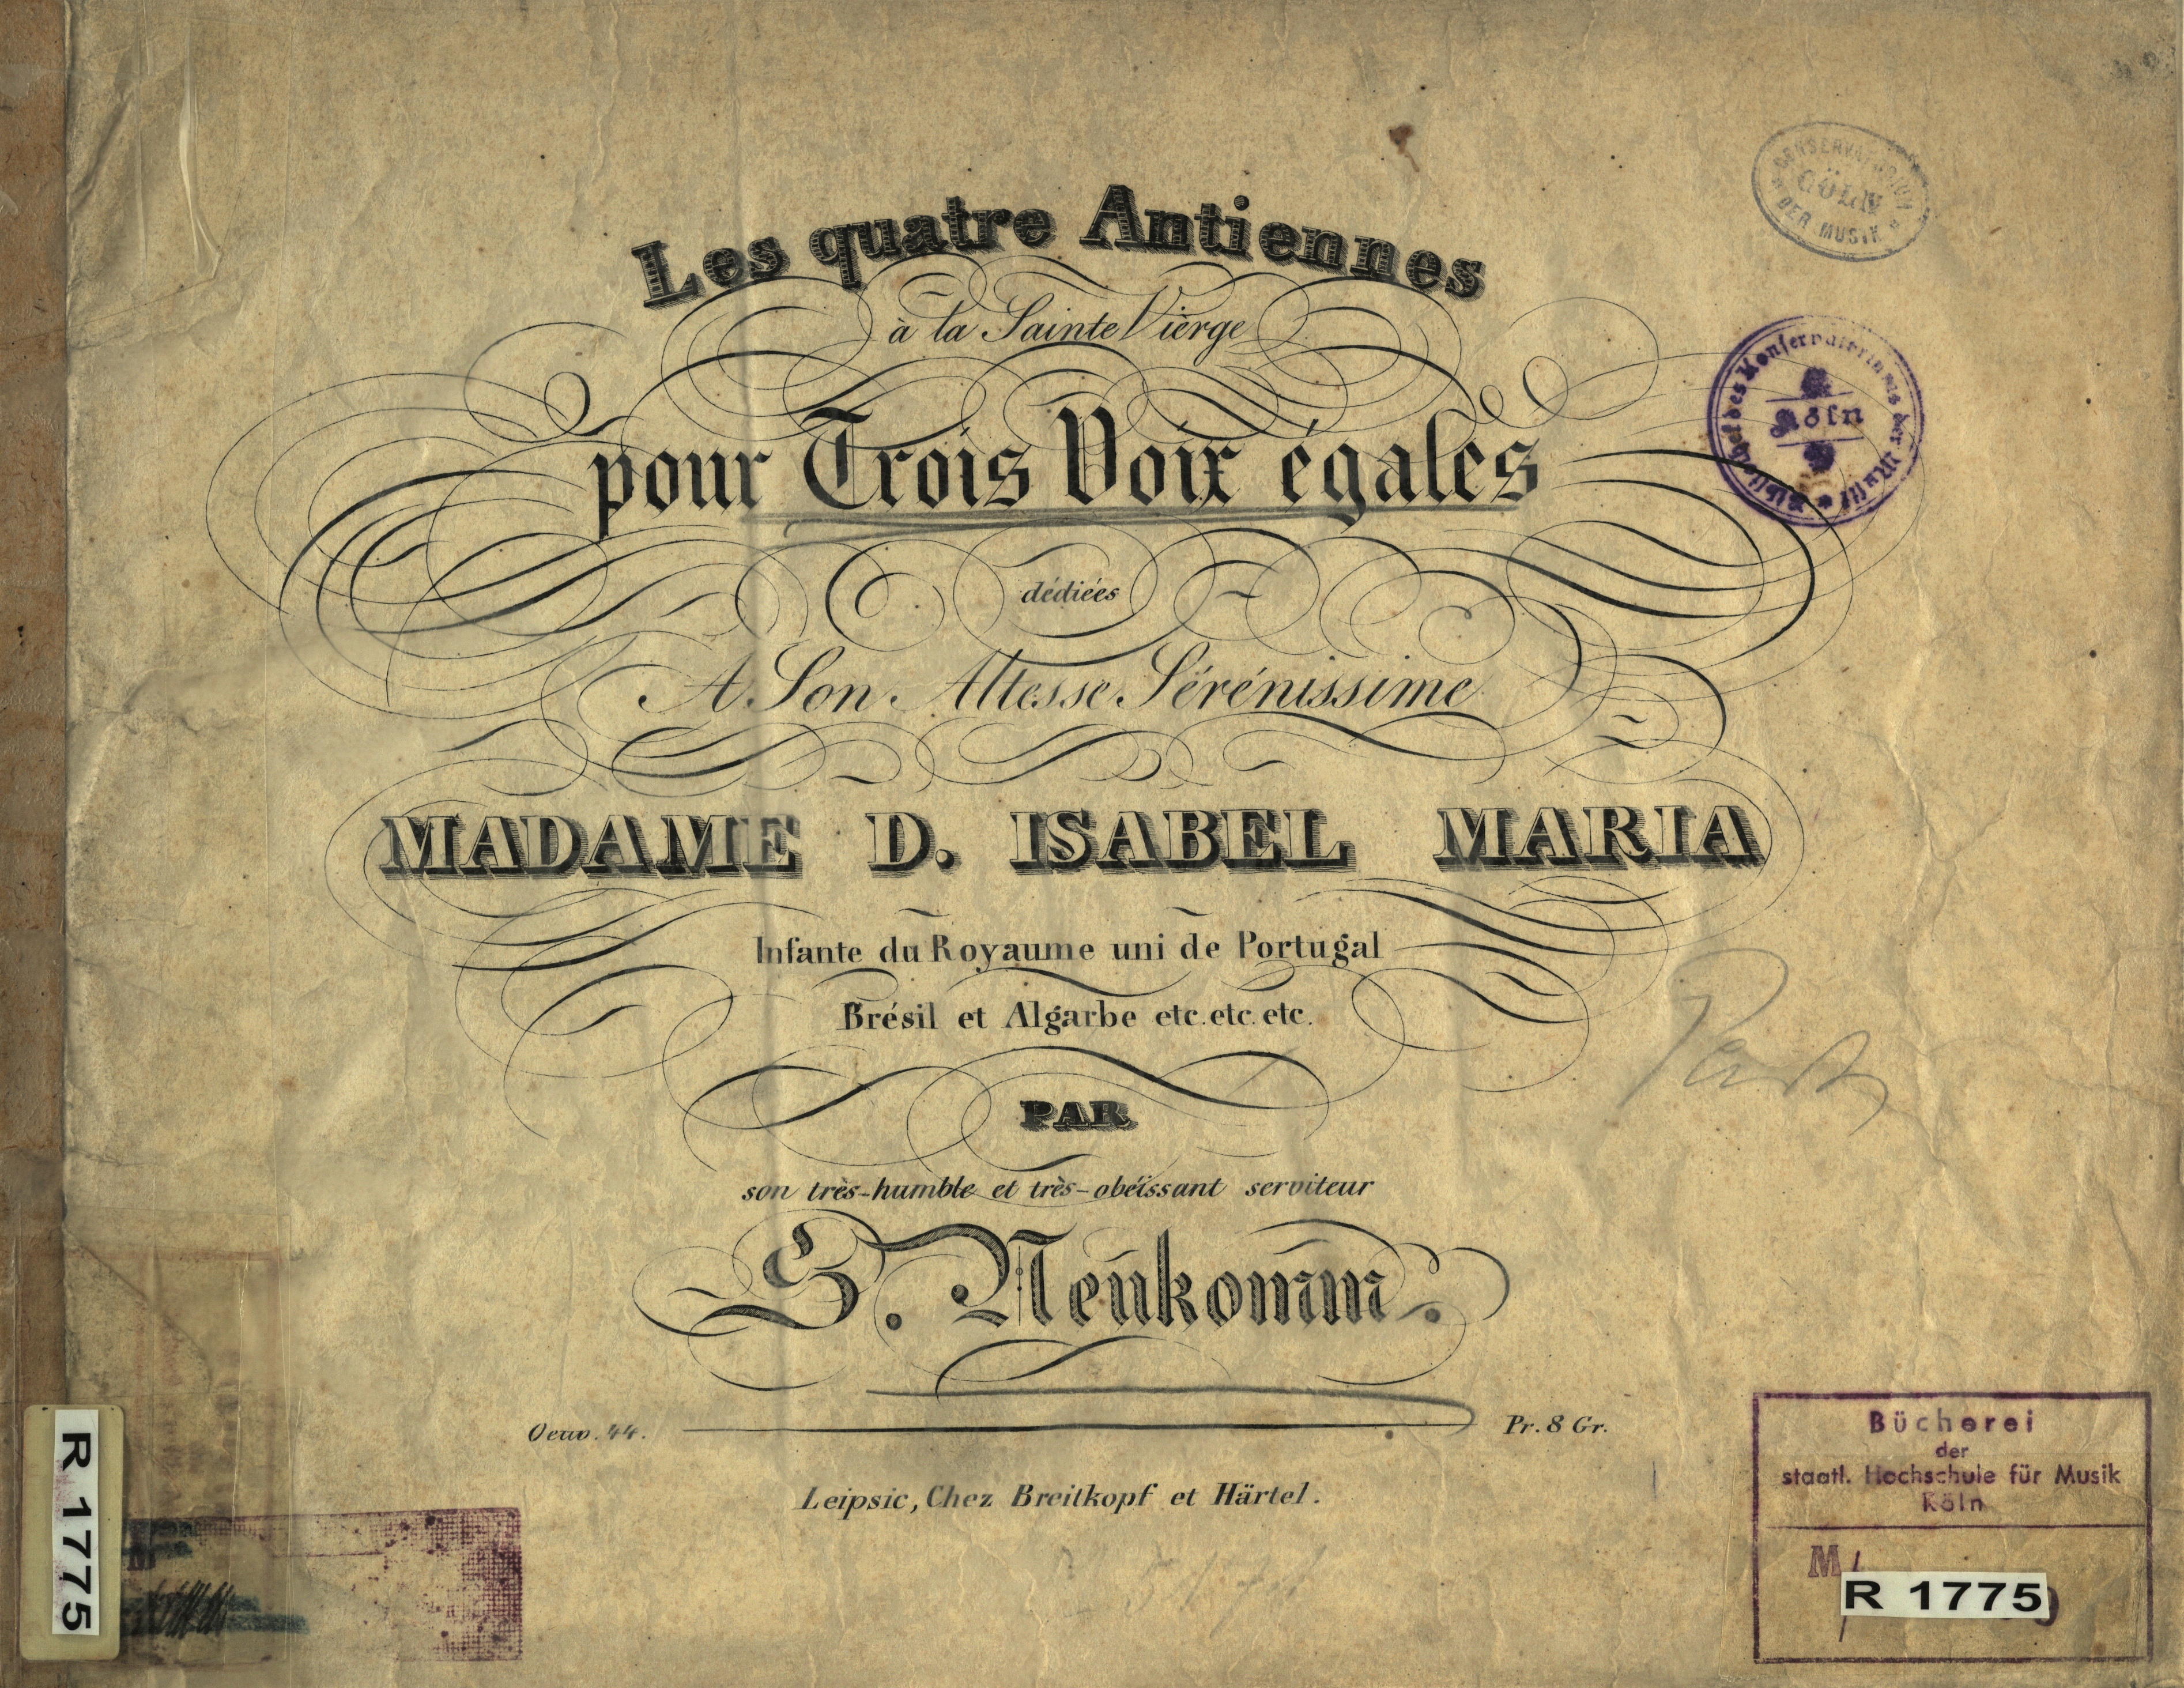 Les quatre Antiennes
à la Sainte Vierge
pour Trois Voix égales
dédiées
A Son Altesse Sérénissime
MADAME D. ISABEL MARIA
Infante du Royaume uni de Portugal
Brésil et Algarbe etc. etc. etc.
PAR
son très-humble et très-obéissant serviteur
S. Neukomm.
Oeuv. 44.
Pr. 8 Gr.
Leipsic, Chez Breitkopf et Härtel.
CONSERVATORIUM
CÖLN
DER MUSIK
Bibliothek des Konservatoriums der Musik
Köln
Bücherei
der
staatl. Hochschule für Musik
Köln
M
R 1775
R 1775